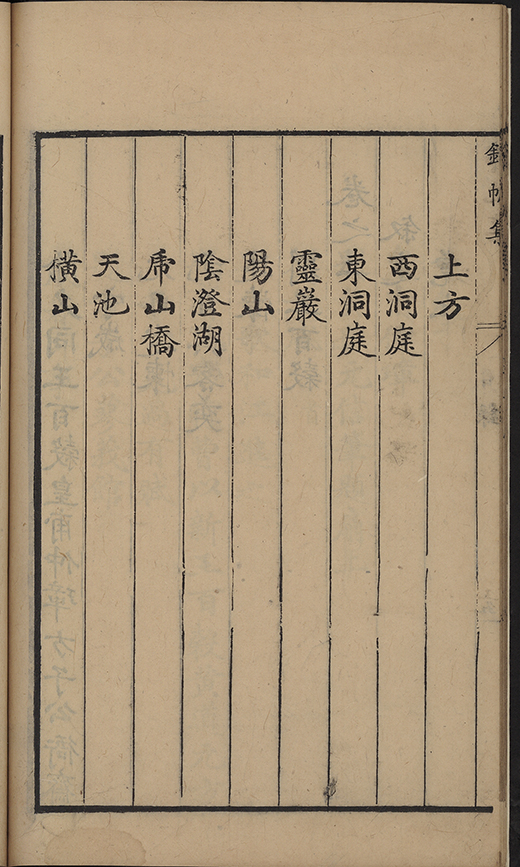 錦帆集
上方
西洞庭
東洞庭
靈巖
陽山
陰澄湖
虎山橋
天池
橫山